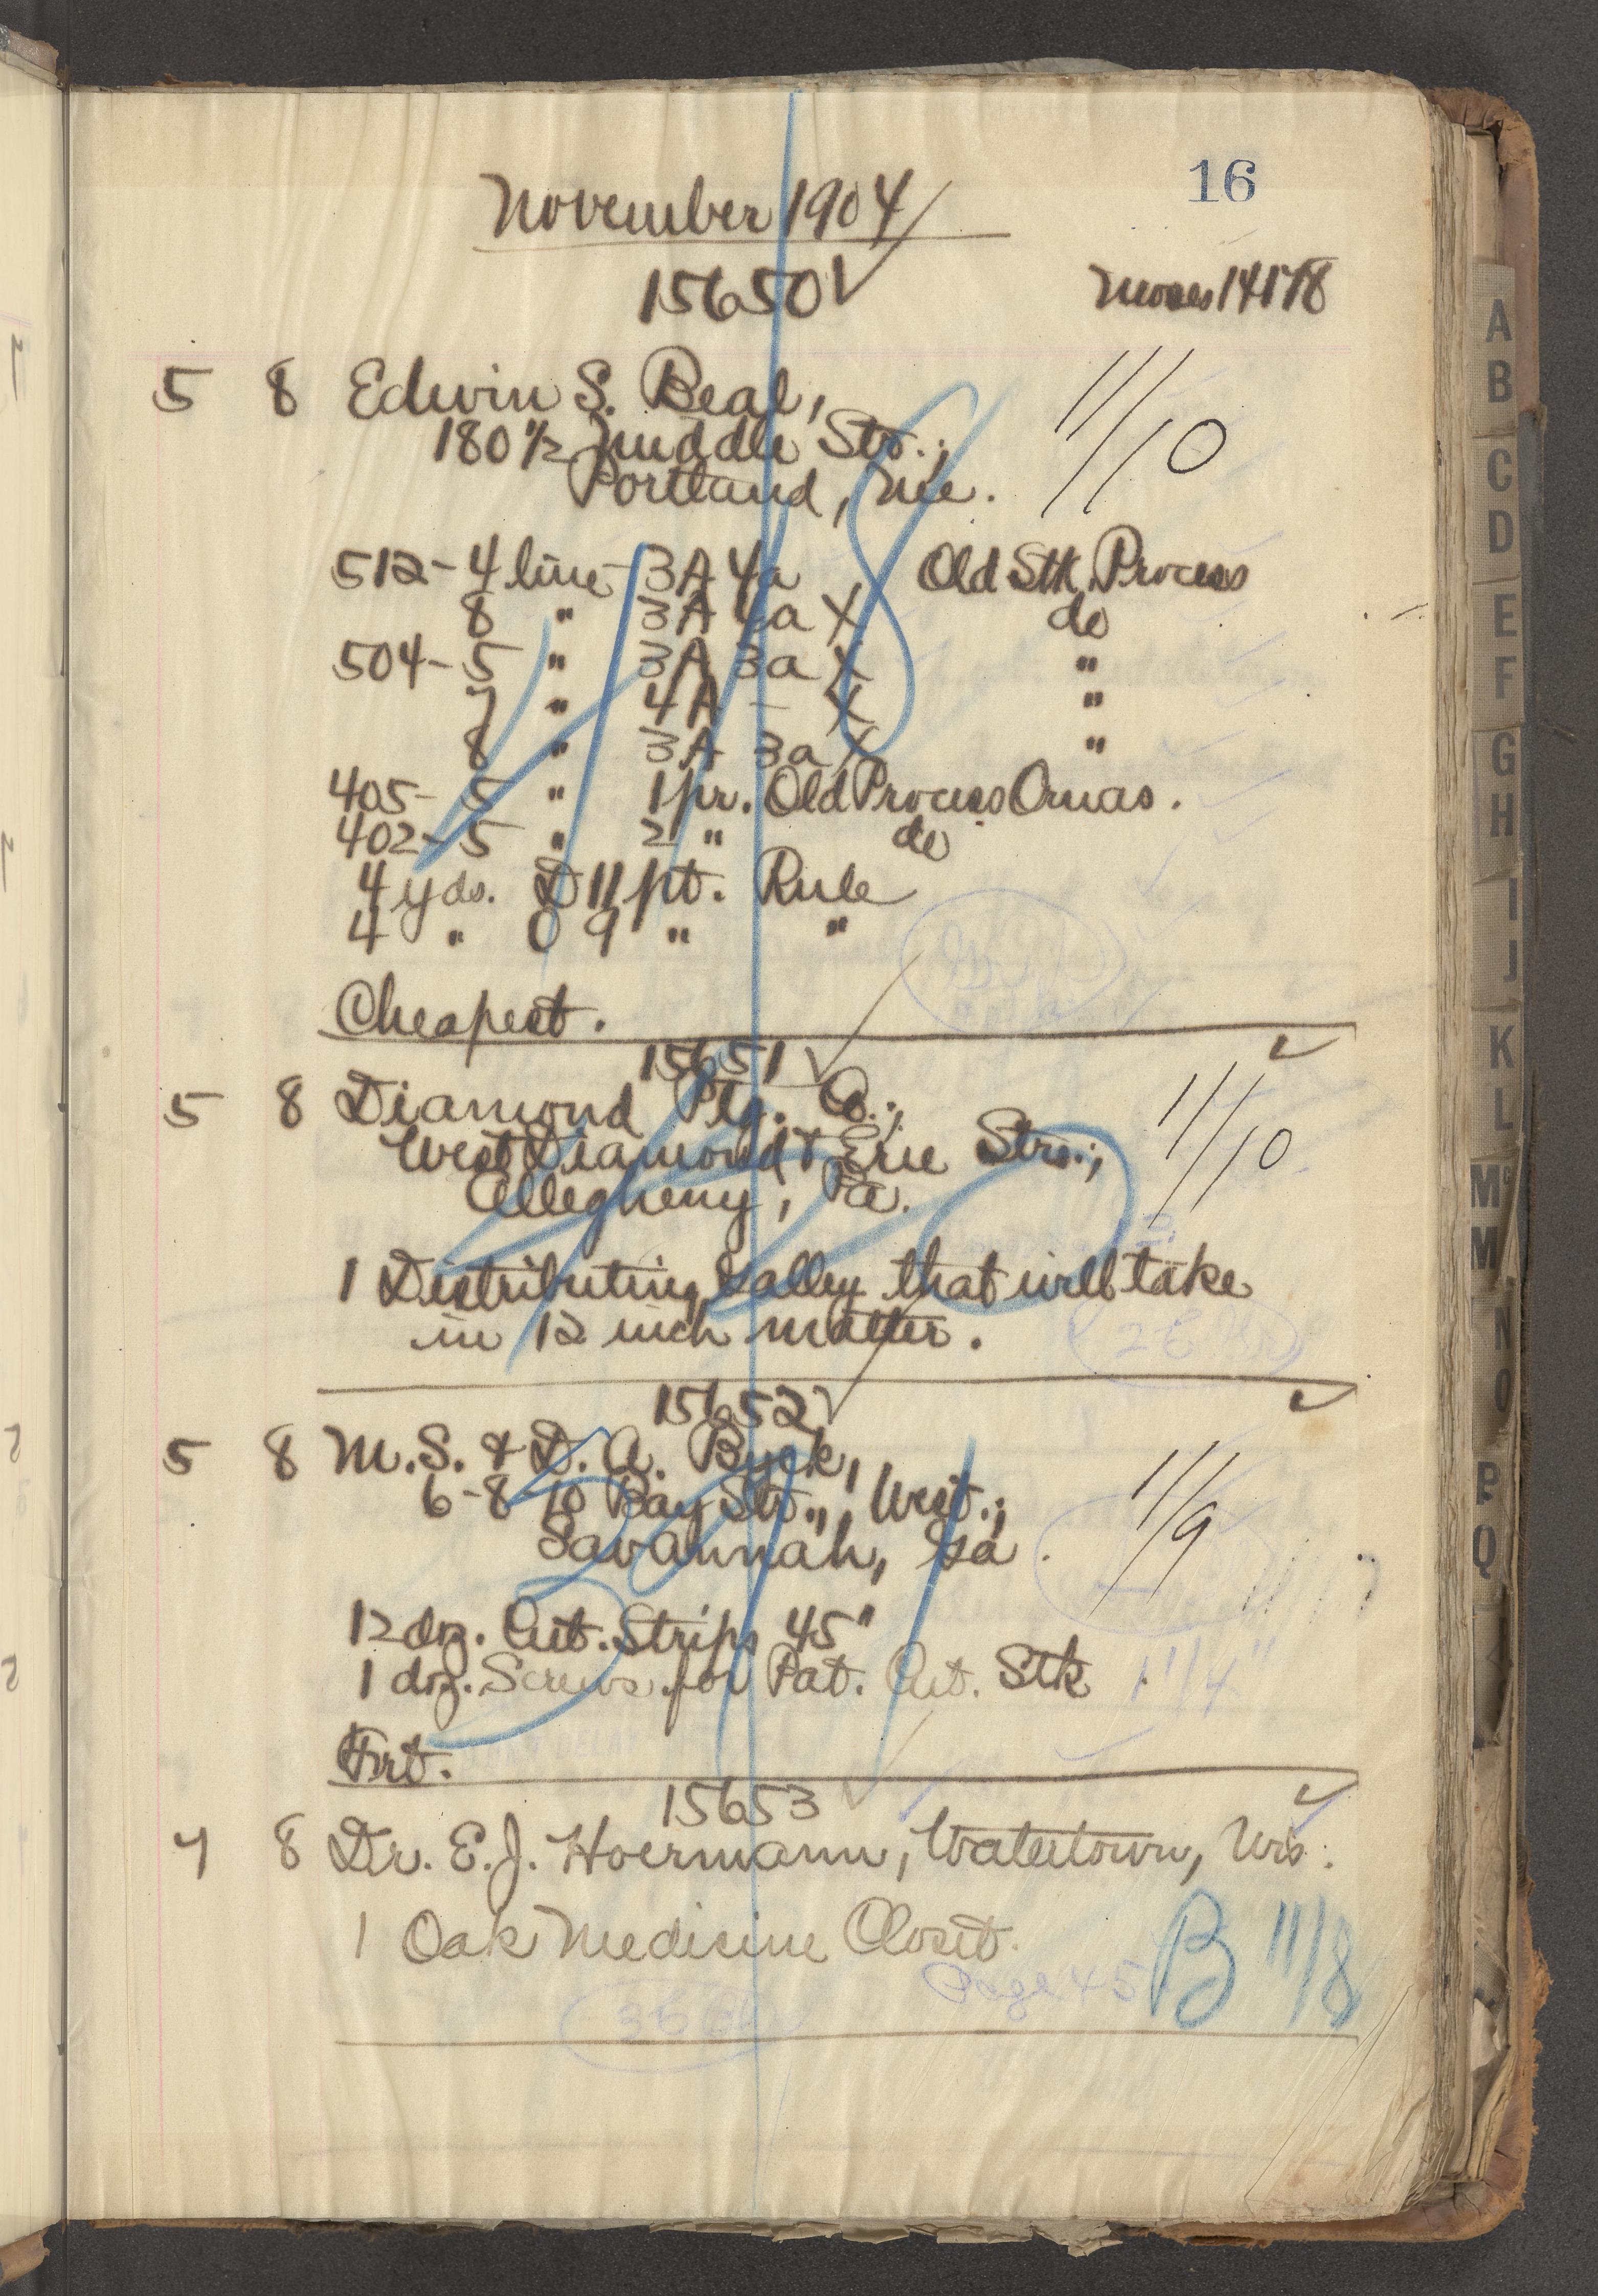 16
November 1904
15650 ✓
Moves 14178
5 8 Edwin S. Beal,
180 1/2 Middle Str.;
Portland, Me.
11/10
512-4 line 3A 4a Old Stk. Process
8 " 3A 4a X do
504-5 " 3A 3a X "
7 " 4A - X "
8 " 3A 3a X "
405-5 " 1 pr. Old Process Ornas.
402-5 " 2 " do
4 yds. D 11 pt. Rule
4 " O 9 " "
Cheapest.
15651 ✓
5 8 Diamond Ptg. Co.;
West Diamond & Erie Strs.;
Allegheny, Pa.
11/10
1 Distributing Galley that will take
in 12 inch matter.
15652 ✓
5 8 M.S. & D.A. Byck,
6-8-10 Bay Str., West.;
Savannah, Ga.
11/9
12 doz. Cut. Strips 45"
1 doz. Screws for Pat. Cut. Stk 1 1/4"
Frt.
15653 ✓
7 8 Dr. E.J. Hoermann, Watertown, Wis.
1 Oak Medicine Closet.
Page 45
B 11/8
A
B
C
D
E
F
G
H
I
J
K
L
Mc
M
N
O
P
Q